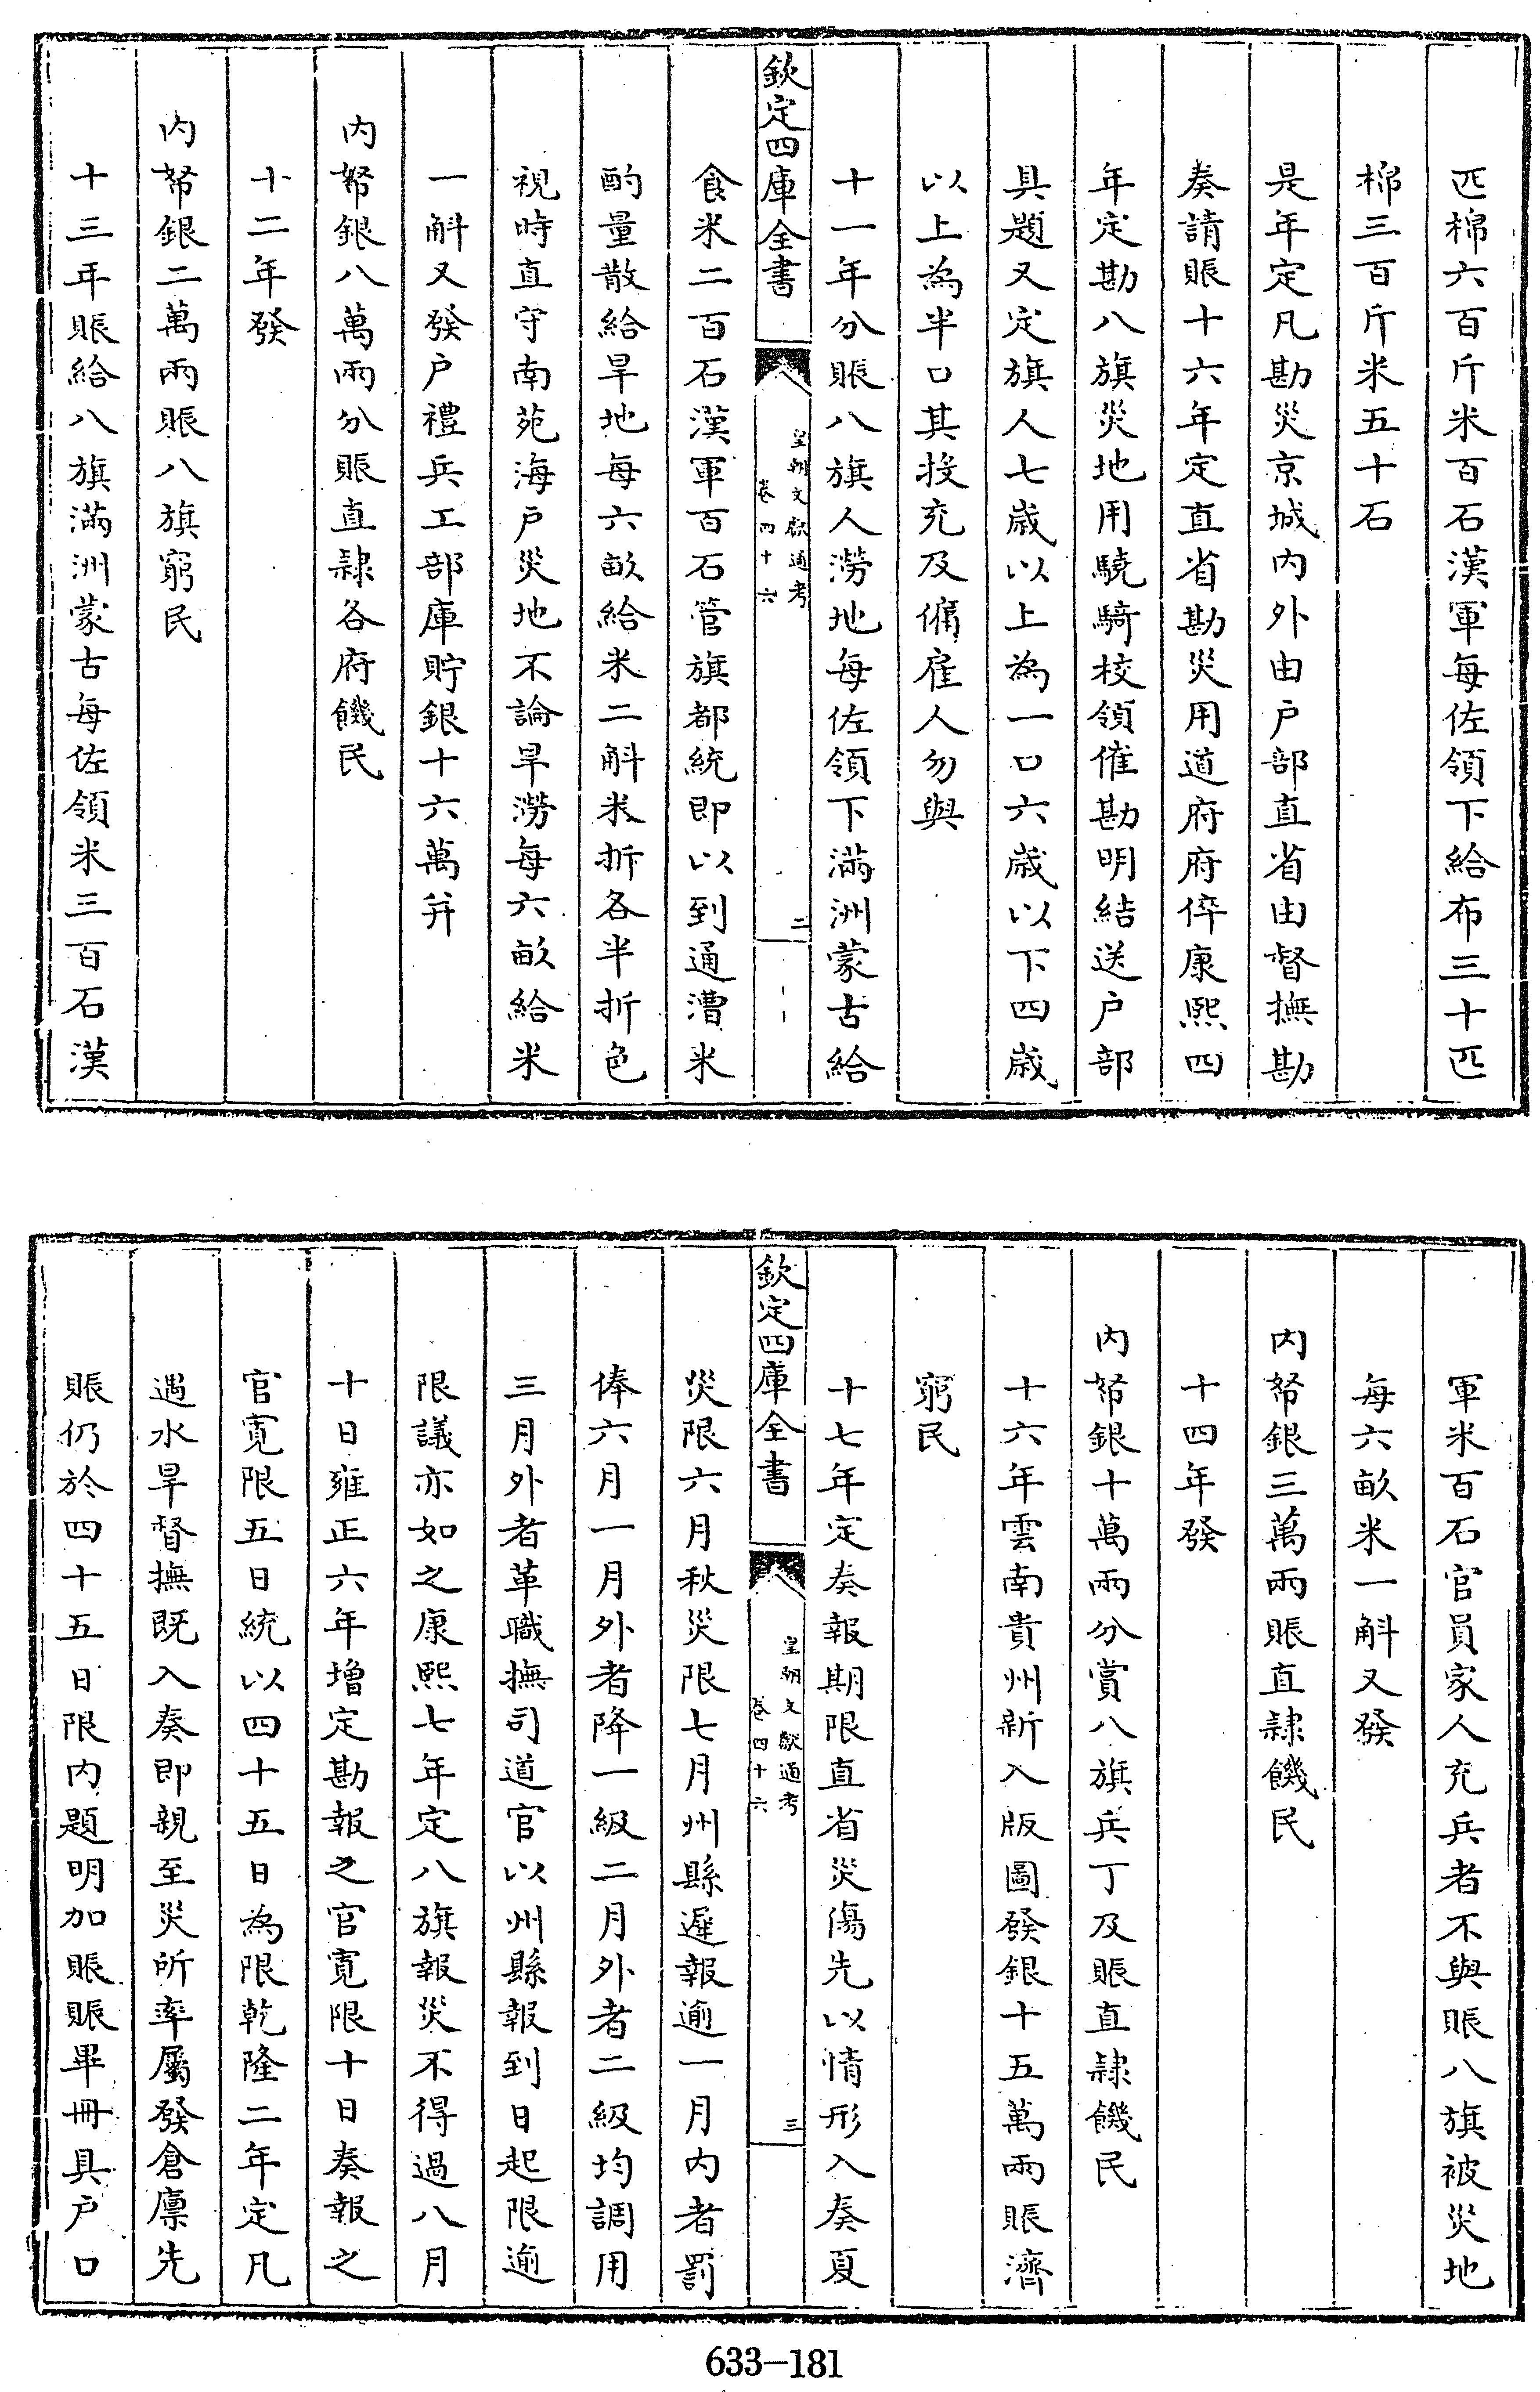 匹棉六百斤米百石漢軍每佐領下給布三十匹
棉三百斤米五十石
是年定凡勘災京城内外由户部直省由督撫勘
奏請賑十六年定直省勘災用道府府倅康熙四
年定勘八旗災地用驍騎校領催勘明結送户部
具題又定旗人七歲以上為一口六歲以下四歲
以上為半口其投充及傭雇人勿與
十一年分賑八旗人澇地每佐領下滿洲蒙古給
欽定四庫全書
皇朝文獻通考
卷四十六
二
食米二百石漢軍百石管旗都統即以到通漕米
酌量散給旱地每六畝給米二斛米折各半折色
視時直守南苑海户災地不論旱澇每六畝給米
一斛又發户禮兵工部庫貯銀十六萬并
内帑銀八萬兩分賑直隸各府饑民
十二年發
内帑銀二萬兩賑八旗窮民
十三年賑給八旗滿洲蒙古每佐領米三百石漢
軍米百石官員家人充兵者不與賑八旗被災地
每六畝米一斛又發
内帑銀三萬兩賑直隸饑民
十四年發
内帑銀十萬兩分賞八旗兵丁及賑直隸饑民
十六年雲南貴州新入版圖發銀十五萬兩賑濟
窮民
十七年定奏報期限直省災傷先以情形入奏夏
欽定四庫全書
皇朝文獻通考
卷四十六
三
災限六月秋災限七月州縣遲報逾一月内者罰
俸六月一月外者降一級二月外者二級均調用
三月外者革職撫司道官以州縣報到日起限逾
限議亦如之康熙七年定八旗報災不得過八月
十日雍正六年增定勘報之官寛限十日奏報之
官寛限五日統以四十五日為限乾隆二年定凡
遇水旱督撫既入奏即親至災所率屬發倉廪先
賑仍於四十五日限内題明加賑賑畢冊具户口
633-181